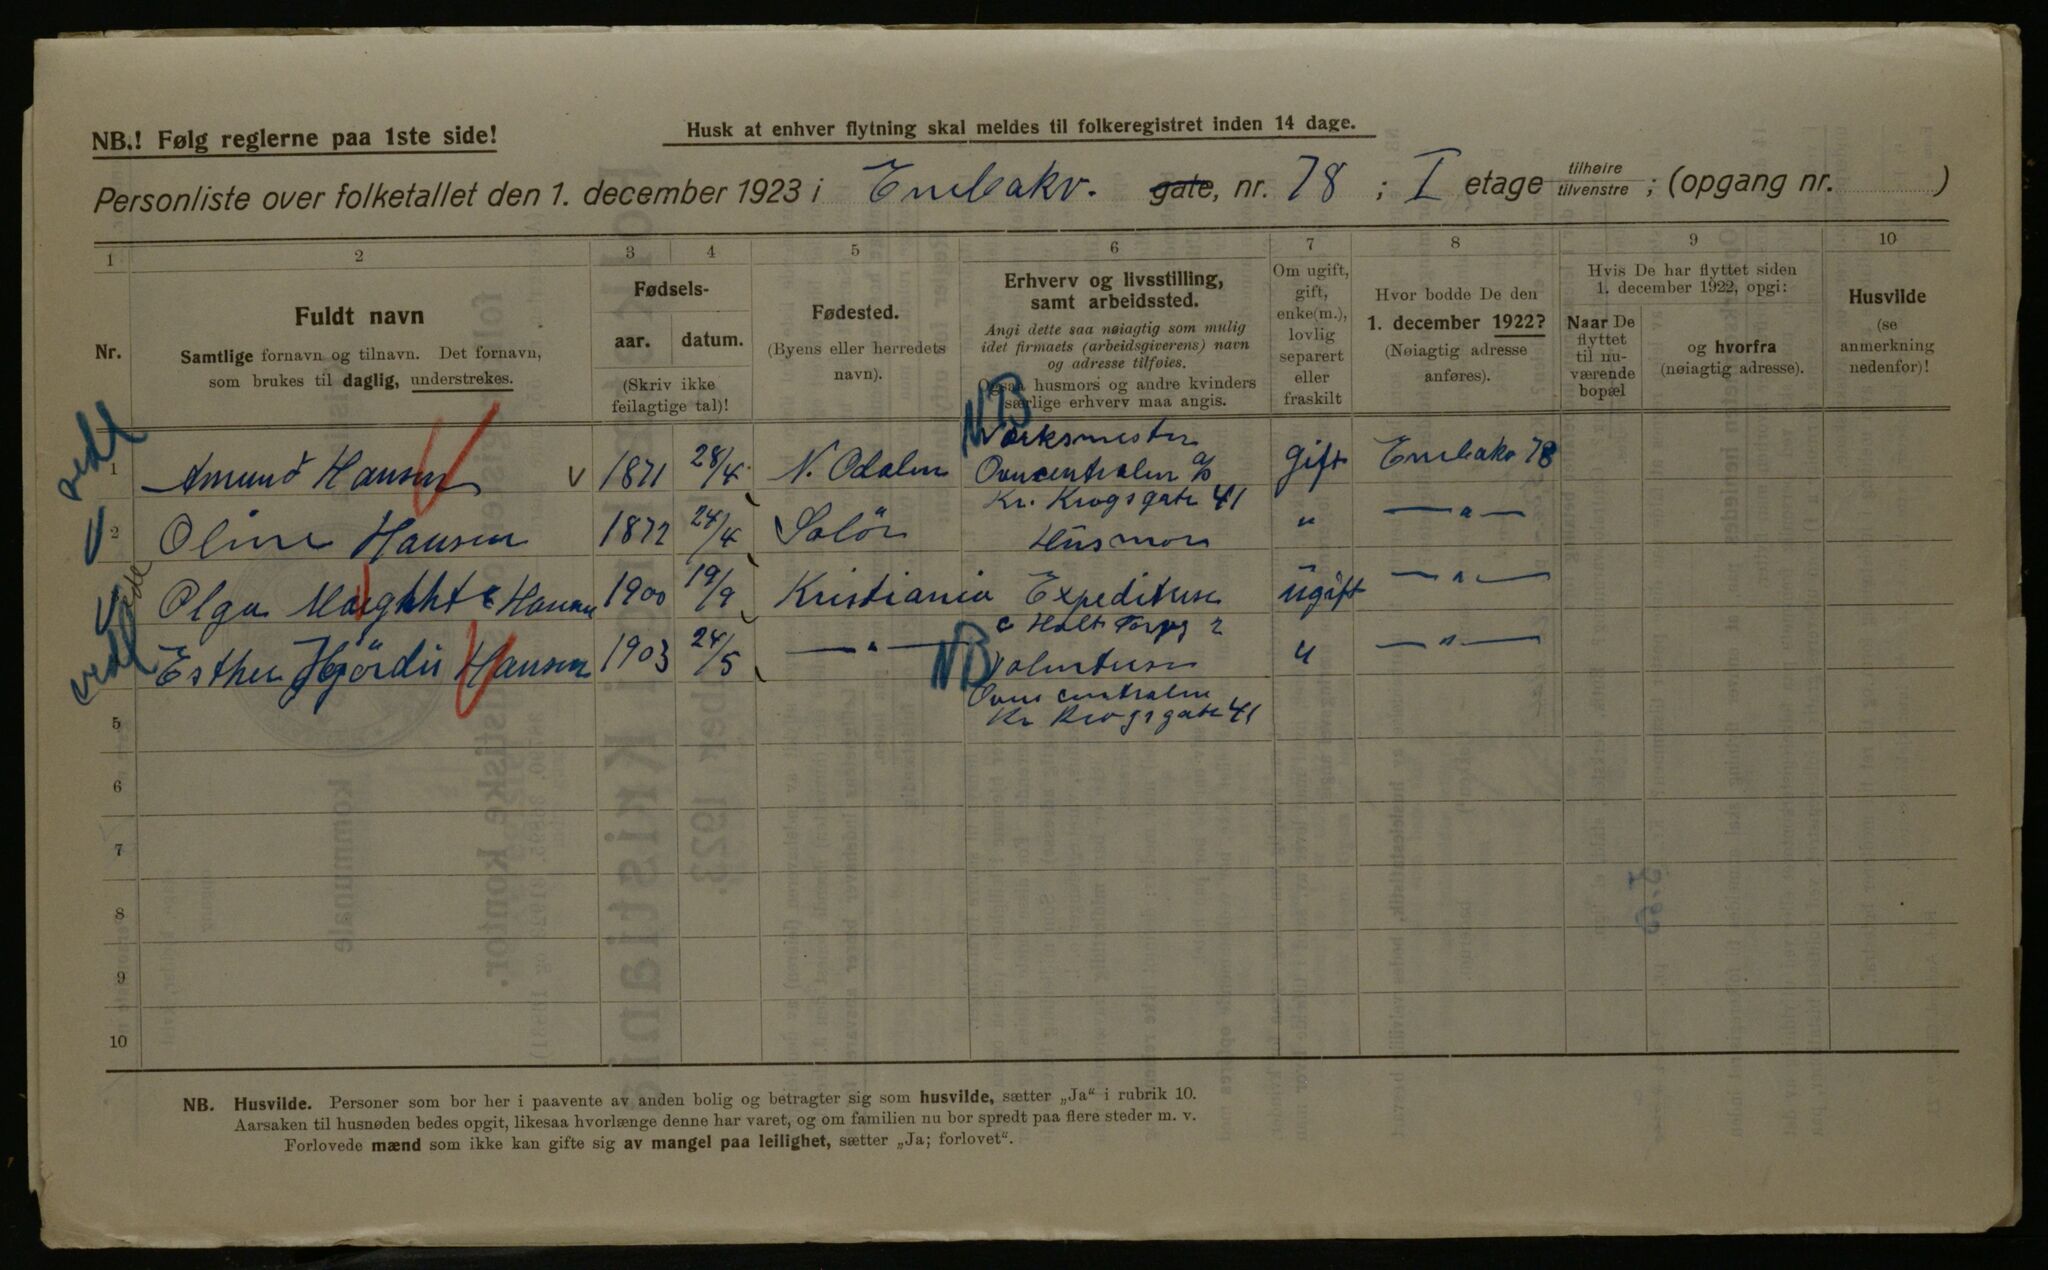 NB.! Følg reglerne paa 1ste side!
Husk at enhver flytning skal meldes til folkeregistret inden 14 dage.
Personliste over folketallet den 1. december 1923 i Enebakv. gate, nr. 78 ; I etage tilhøire tilvenstre ; (opgang nr. )
1 2 3 4 5 6 7 8 9 10
Nr.
Fuldt navn
Samtlige fornavn og tilnavn. Det fornavn,
som brukes til daglig, understrekes.
Fødsels-
aar. datum.
(Skriv ikke
feilagtige tal)!
Fødested.
(Byens eller herredets
navn).
Erhverv og livsstilling,
samt arbeidssted.
Angi dette saa nøiagtig som mulig
idet firmaets (arbeidsgiverens) navn
og adresse tilføies.
Ogsaa husmors og andre kvinders
særlige erhverv maa angis.
Om ugift,
gift,
enke(m.),
lovlig
separert
eller
fraskilt
Hvor bodde De den
1. december 1922?
(Nøiagtig adresse
anføres).
Hvis De har flyttet siden
1. december 1922, opgi:
Naar De
flyttet
til nu-
værende
bopæl
og hvorfra
(nøiagtig adresse).
Husvilde
(se
anmerkning
nedenfor)!
NB
Verksmester
1 Amund Hansen v 1871 28/4 N. Odalen Ovncentralen A/S gift Enebakv 78
Kr. Krogsgate 41
2 Oline Hansen 1872 24/4 Solör Husmor " — " —
Olga Hansen 1900 19/9 Kristiania Expeditrise ugift — " —
Holt
Esther Hjördis Hansen 1903 24/5 — " — NB Volontrise " — " —
Ovnscentralen
5 Kr Krogsgate 41
6
7
8
9
10
NB. Husvilde. Personer som bor her i paavente av anden bolig og betragter sig som husvilde, sætter „Ja“ i rubrik 10.
Aarsaken til husnøden bedes opgit, likesaa hvorlænge denne har varet, og om familien nu bor spredt paa flere steder m. v.
Forlovede mænd som ikke kan gifte sig av mangel paa leilighet, sætter „Ja; forlovet“.